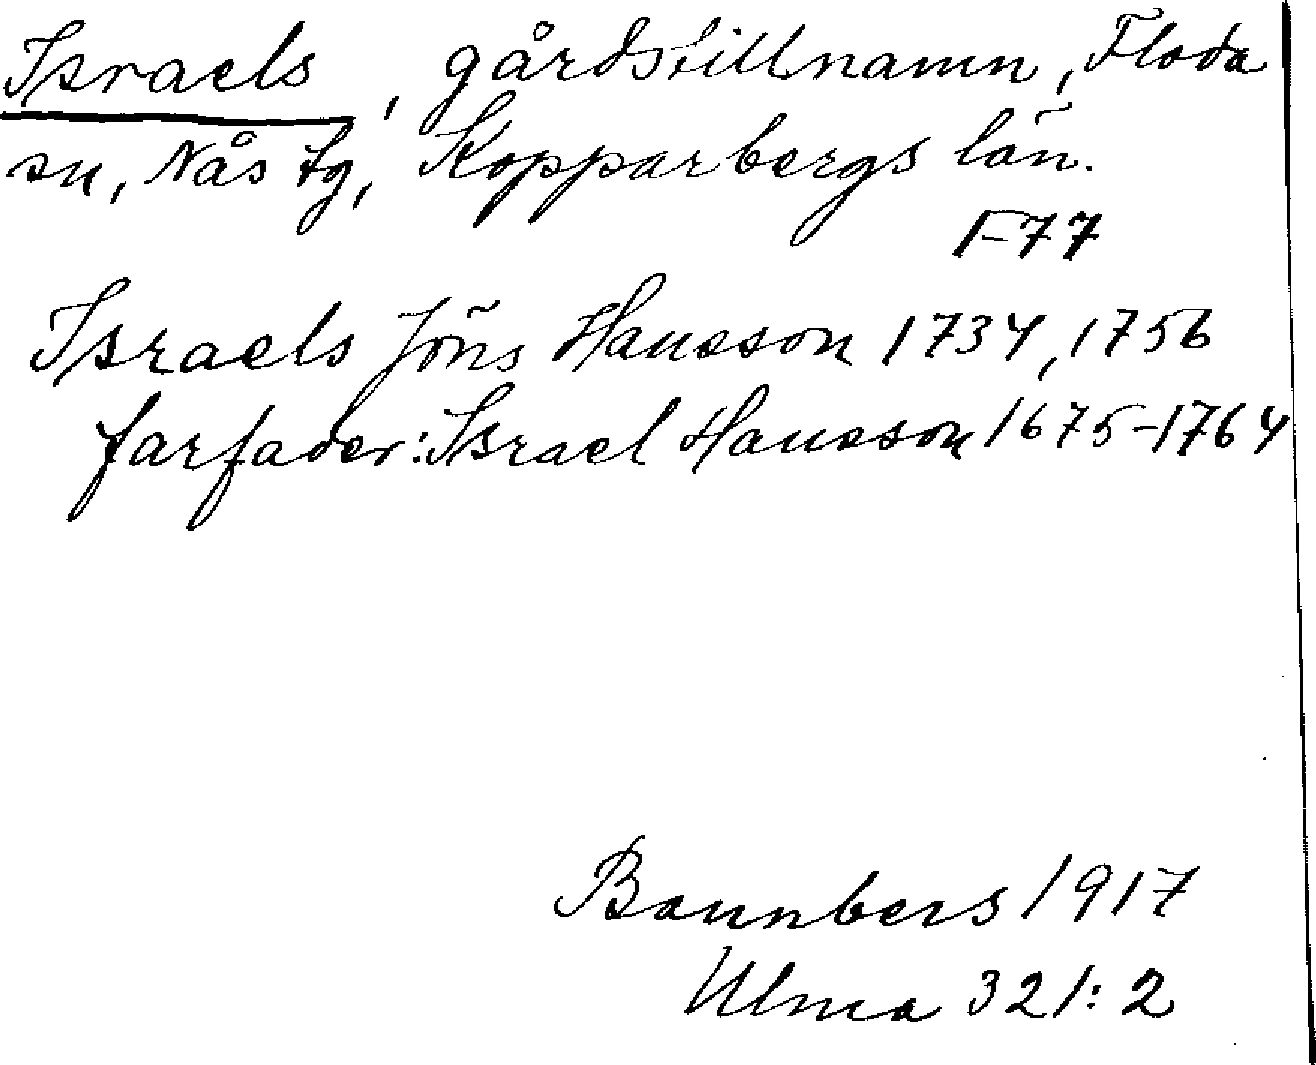 Israels, gårdstillnamn, Floda
sn, Nås tg, Kopparbergs län.
F77
Israels Jöns Hansson 1734, 1756
farfader: Israel Hansson 1675-1764
Bannbers 1917
Ulma 321:2